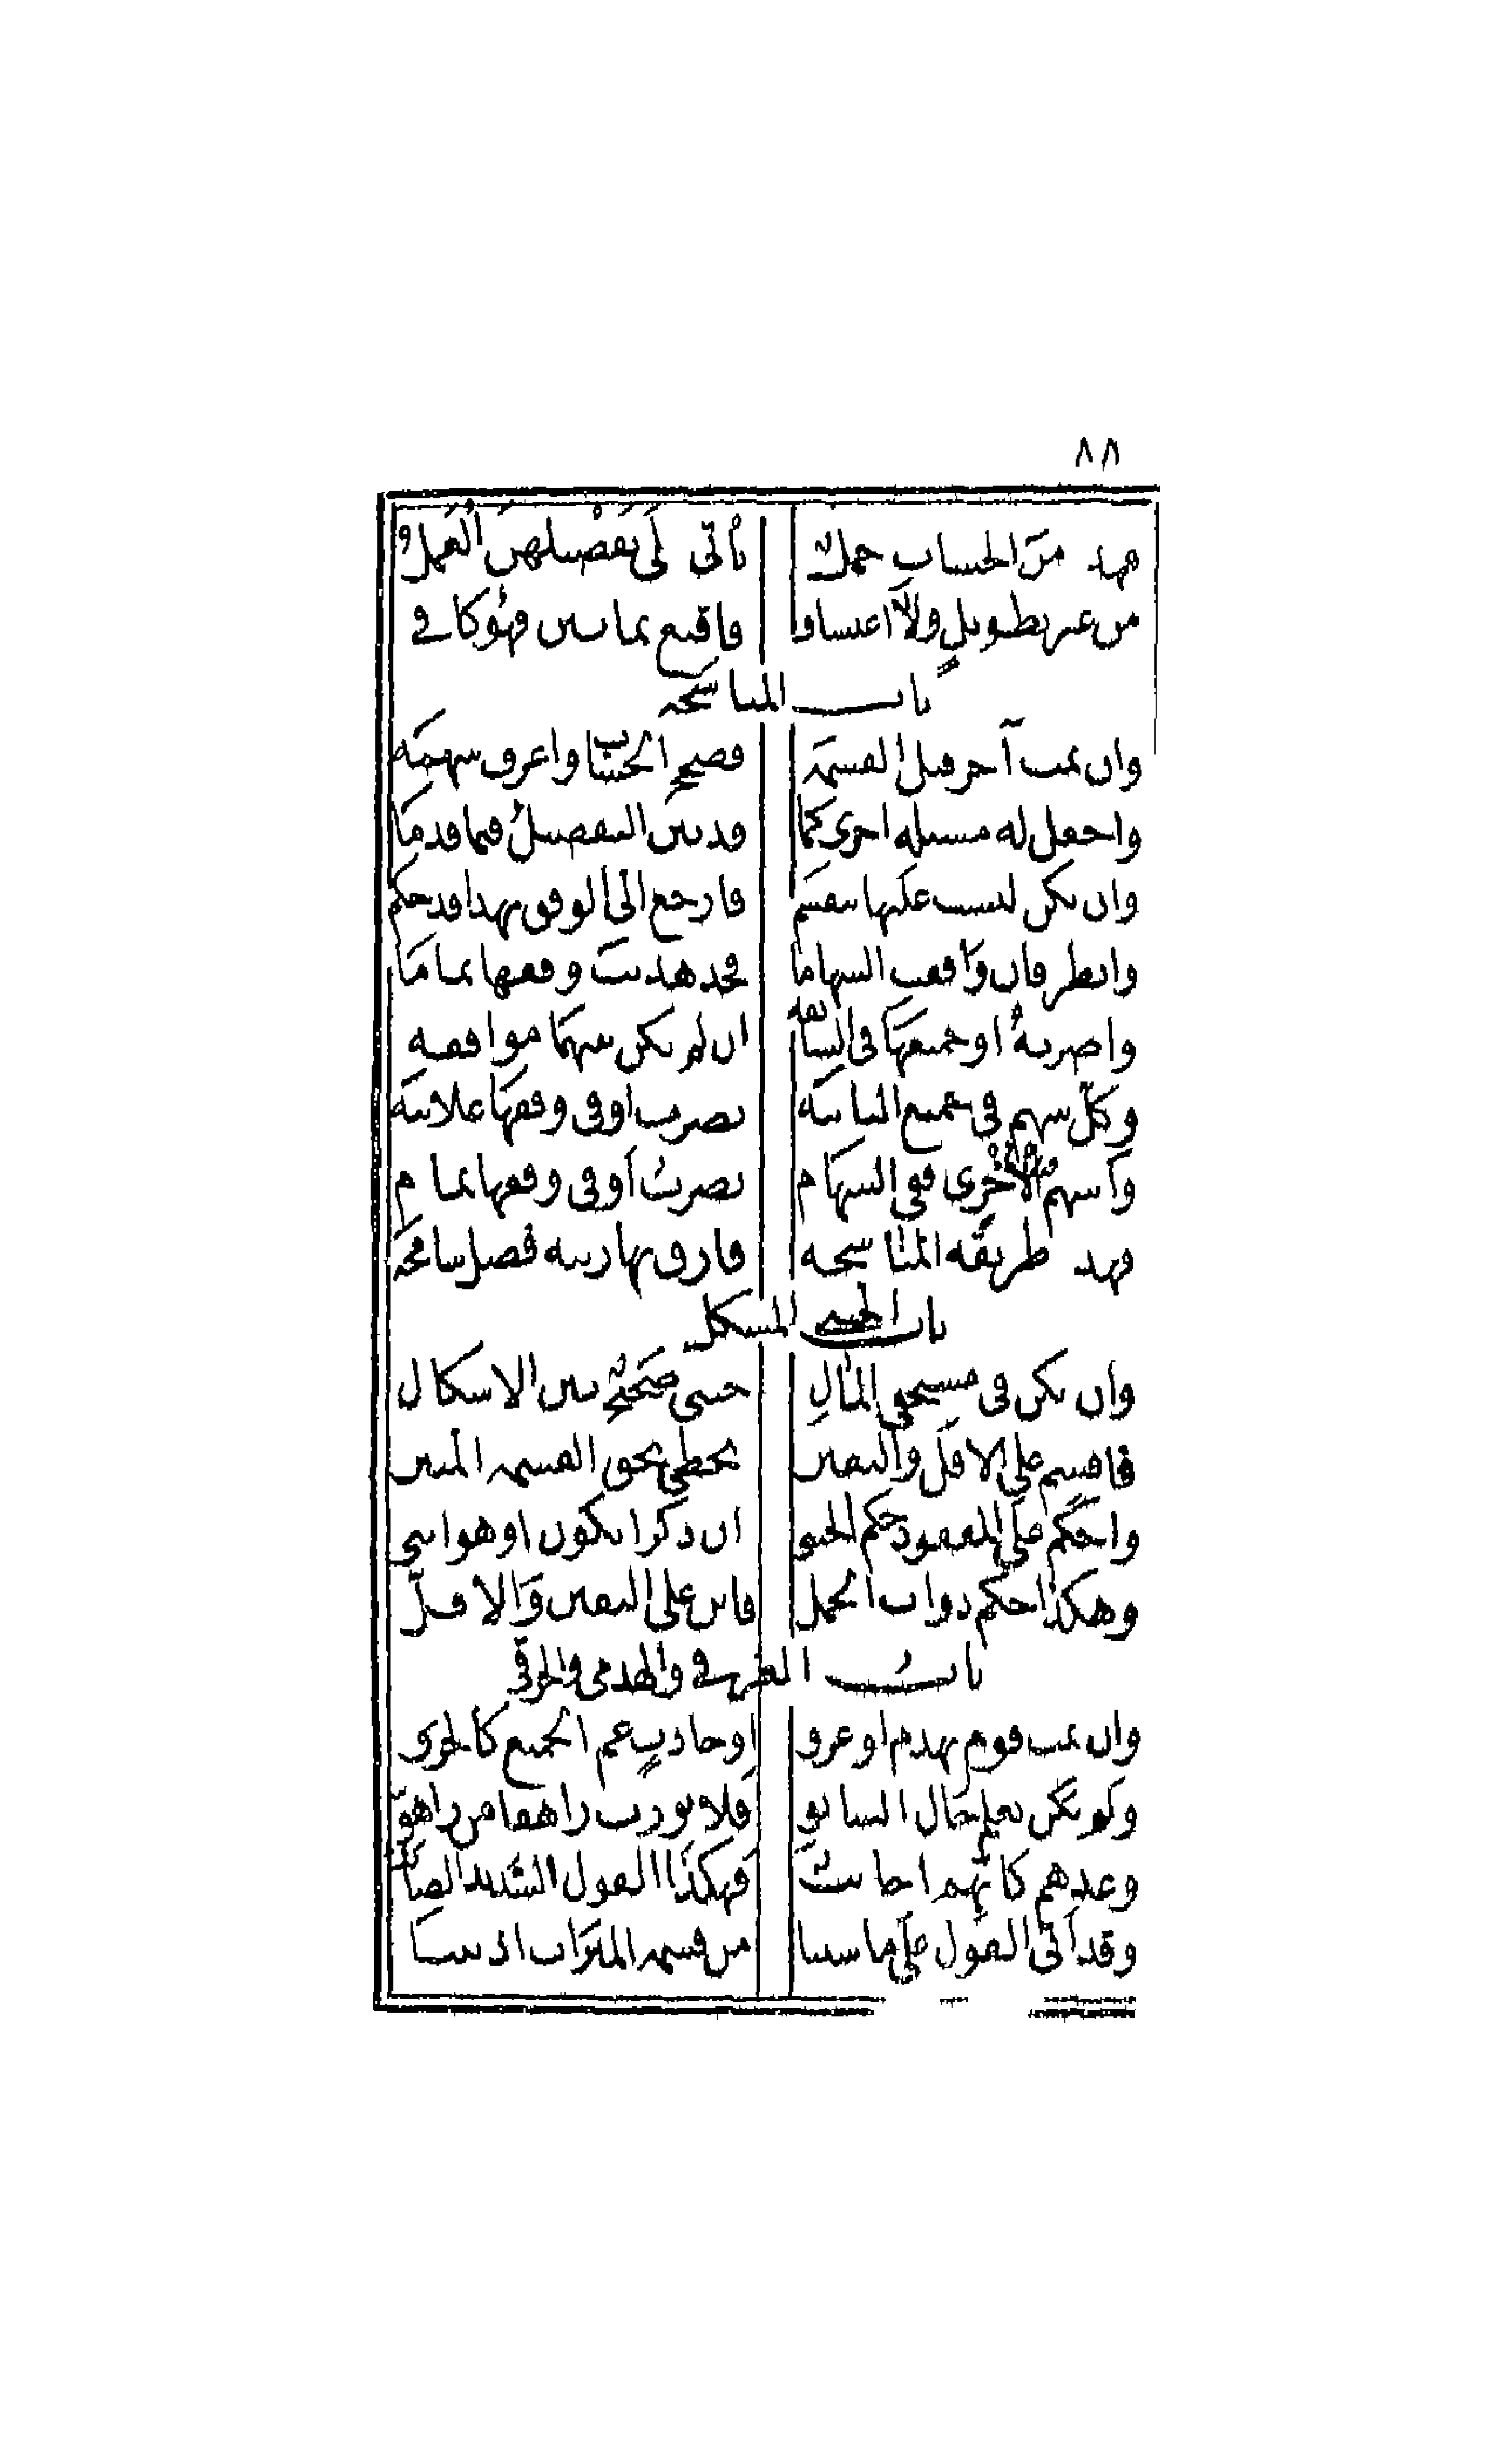 ٨٨
فهذه من الحساب جمل يأتي على تفصيلهن العمل و
من غير تطويل ولا اعتساف فاقنع بما بين فهو كافي
باب المناسخه
وان يمت آخر قبل القسمه فصحح الحساب واعرف سهمه
واجعل له مسئله اخرى كما قد بين التفصيل فيما قدما
وان تكن ليست عليها تنقسم فارجع الى الوفق بهذا قد حكم
وانظر فان وافقت السهاما فخذ هديت وفقها تماما
واضربه او جميعها في السابقه ان لم تكن بينهما موافقه
وكل سهم في جميع الثانيه يضرب او في وفقها علانيه
واسهم الاخرى ففي السهام تضرب او في وفقها تمام
فهذه طريقة المناسخه فارق بها رتبة فضل شامخه
باب الخنثى المشكل
وان يكن في مستحقي المال خنثى صحيح بين الاشكال
فاقسم على الاقل واليقين تحظى بحق القسمة المبين
واحكم على المفقود حكم الخنثى ان ذكرا يكون او هو انثى
وهكذا حكم ذوات الحمل فابن على اليقين والاقل
باب الغرقى والهدمى والحرقى
وان يمت قوم بهدم او غرق او حادث عم الجميع كالحرق
ولم يكن يعلم حال السابق فلا تورث زاهقا من زاهق
وعدهم كانهم اجانب فهكذا القول السديد الصائب
وقد اتى القول على ما شئنا من قسمة الميراث اذ بينا